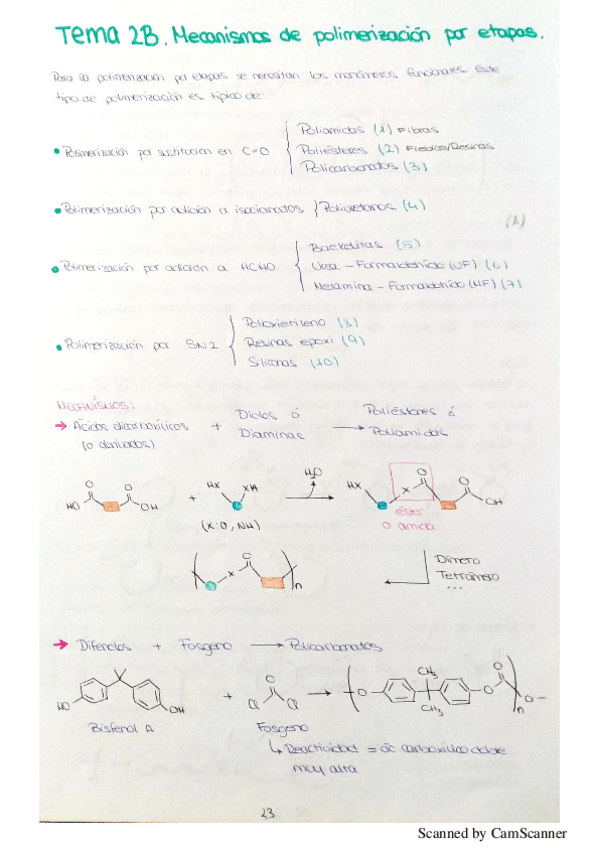 Tema 2B. Mecanismos de polimerización por etapas.
Para la polimerización por etapas se necesitan los monómeros funcionales. Este
tipo de polimerización es típico de:
• Polimerización por sustitución en C=O
Poliamidas (1) Fibras
Poliésteres (2) Fibras/Resinas
Policarbonatos (3)
• Polimerización por adición a isocianatos } Poliuretanos (4)
(1)
• Polimerización por adición a HCHO
Backelitas (5)
Urea - Formaldehído (UF) (6)
Melamina - Formaldehído (MF) (7)
• Polimerización por SN2
Polioxietileno (8)
Resinas epoxi (9)
Siliconas (10)
MECANISMOS:
→ Ácidos dicarboxílicos + Dioles ó ⟶ Poliésteres ó
(o derivados) Diaminas Poliamidas
HO O O OH + HX XH H2O HX X O O OH
(X: O, NH)
éster
o amida
( X O )n
Dímero
Tetrámero
...
→ Difenoles + Fosgeno ⟶ Policarbonatos
HO OH + O Cl Cl → ( O CH3 CH3 O O )n O
Bisfenol A Fosgeno
↳ Reactividad = ác carboxílico doble
muy alta
23
Scanned by CamScanner